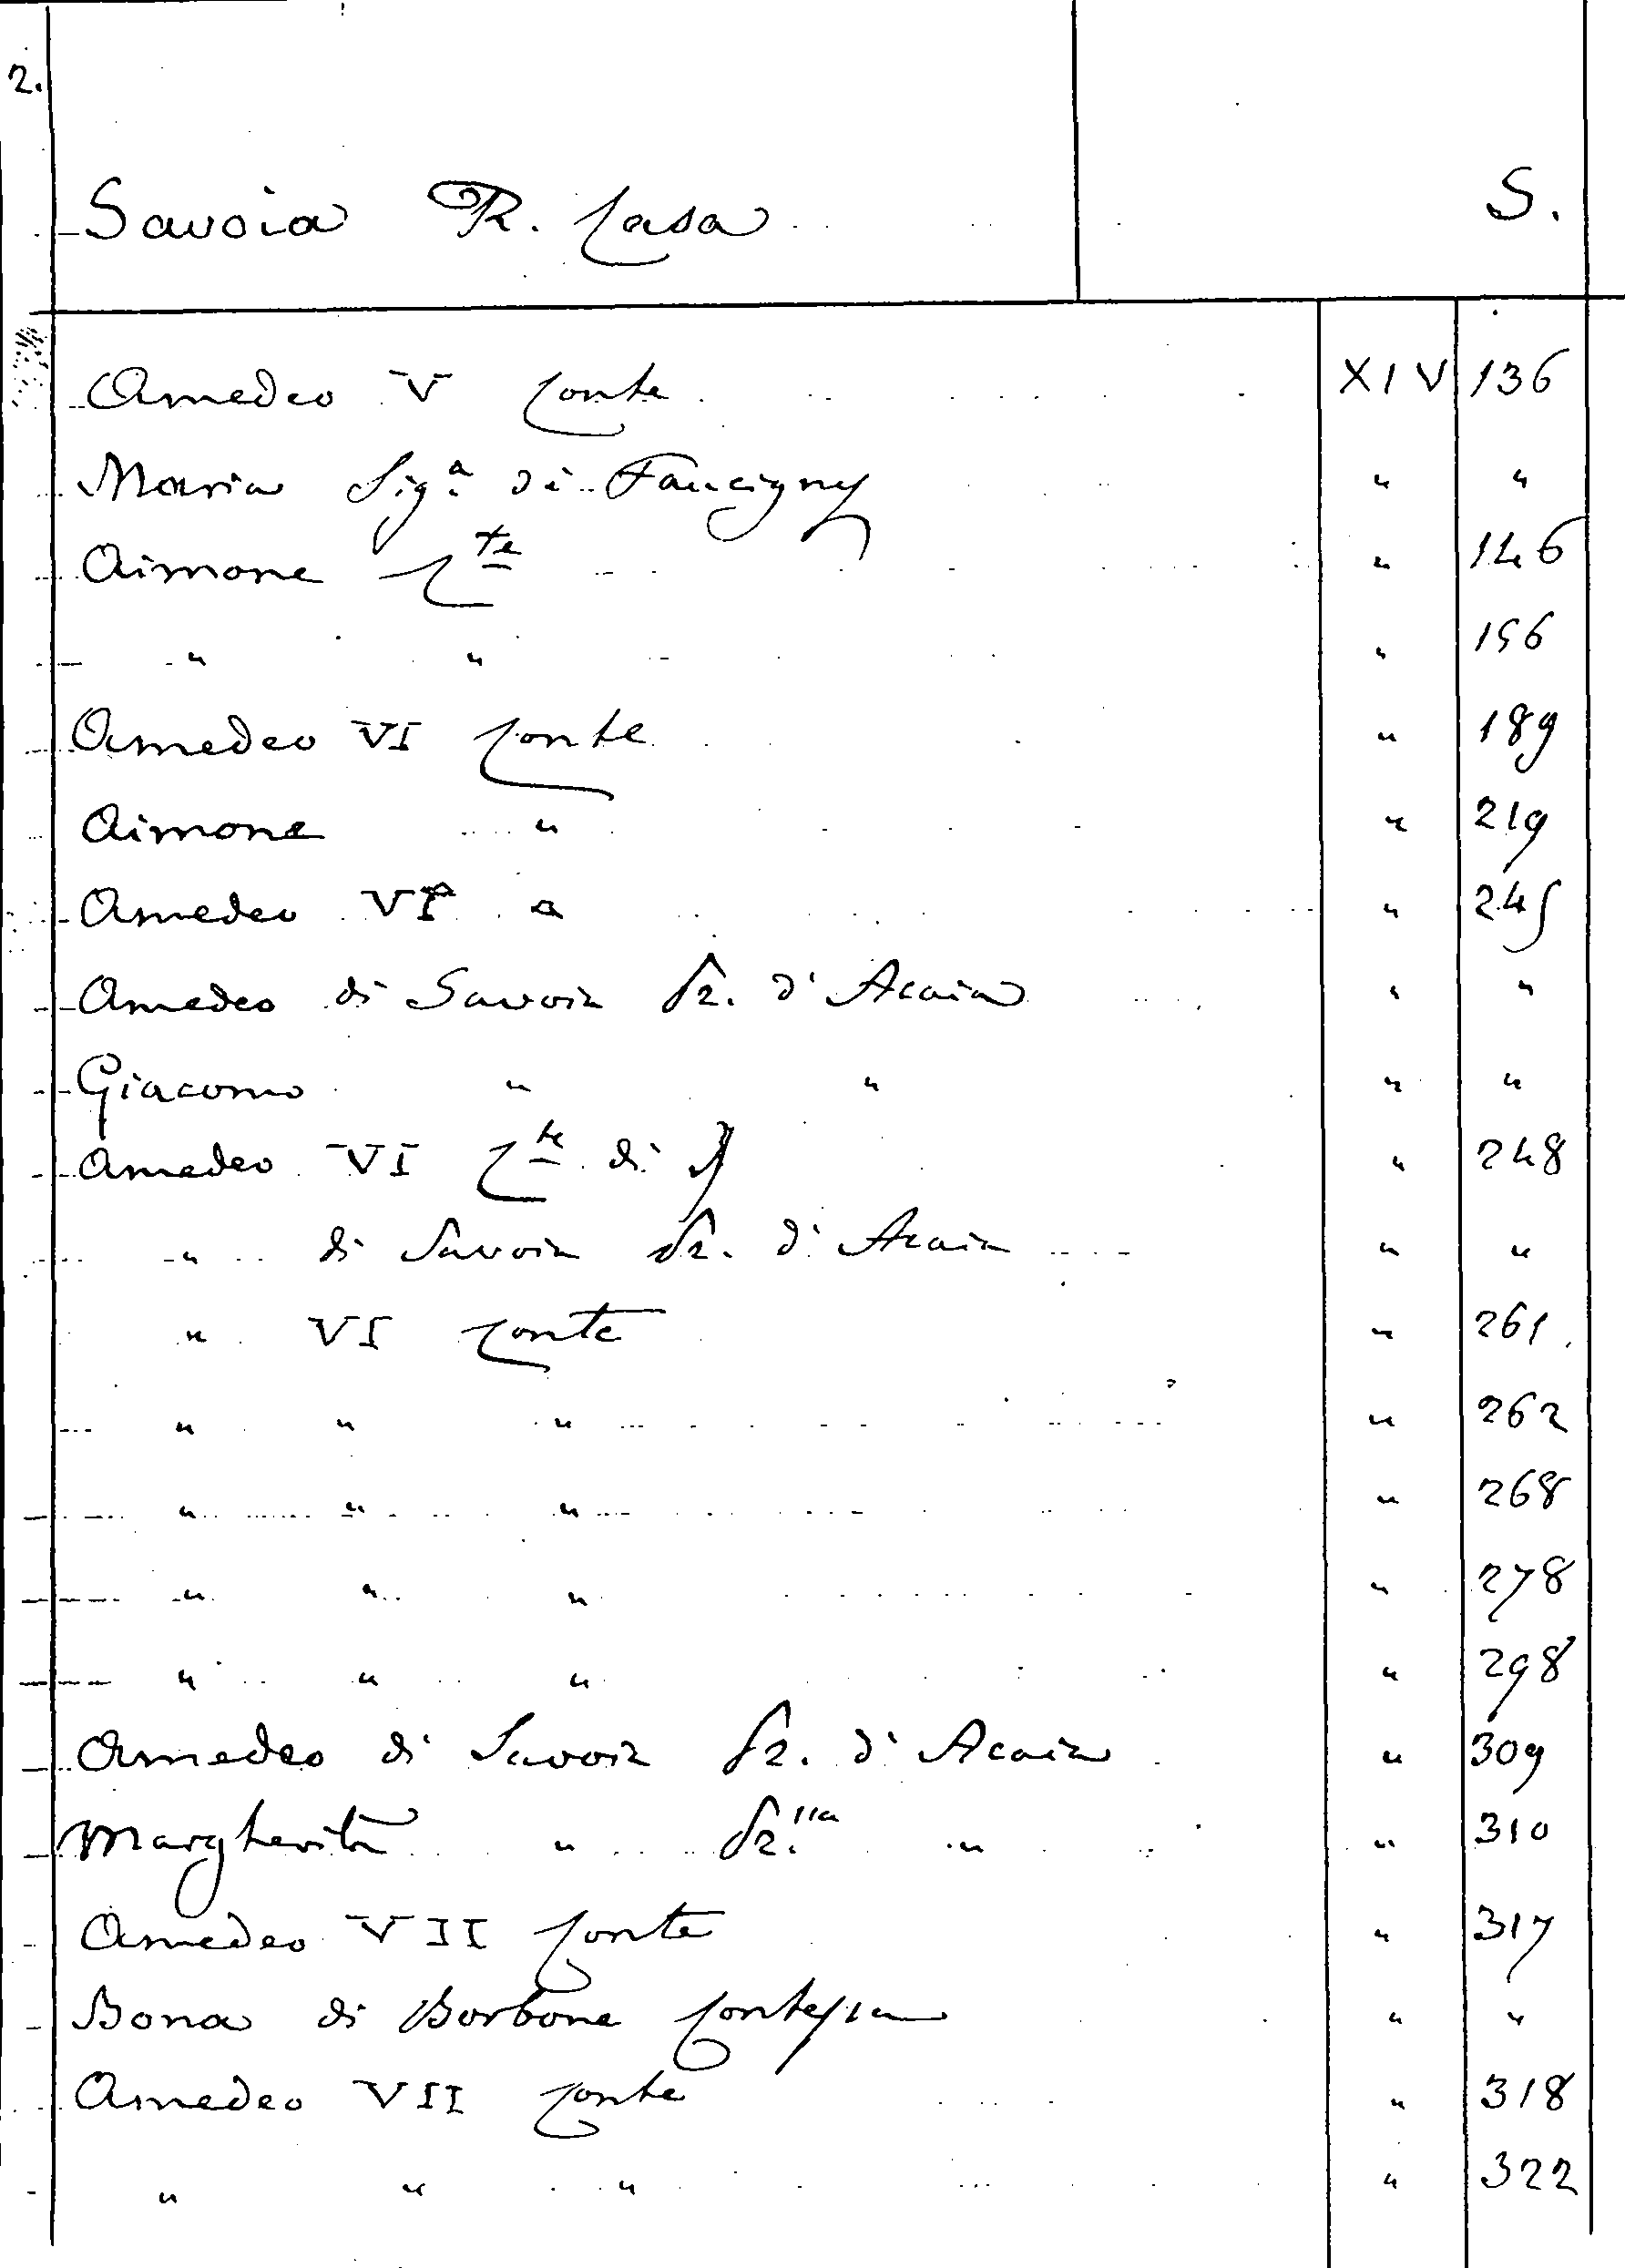 2.
Savoia R. Casa S.
Amedeo V Conte XIV 136
Maria Sig.a di Faucigny " "
Aimone Cte " 146
" " " 156
Amedeo VI Conte " 189
Aimone " " 219
Amedeo VI " " 245
Amedeo di Savoia Pr. d'Acaia " "
Giacomo " " " "
Amedeo VI Cte di S " 248
" di Savoia Pr. d'Acaia " "
" VI Conte " 261
" " " " 262
" " " " 268
" " " " 278
" " " " 298
Amedeo di Savoia Pr. d'Acaia " 309
Margherita " Pr.ssa " " 310
Amedeo VII Conte " 317
Bona di Borbone Contessa " "
Amedeo VII Conte " 318
" " " " 322